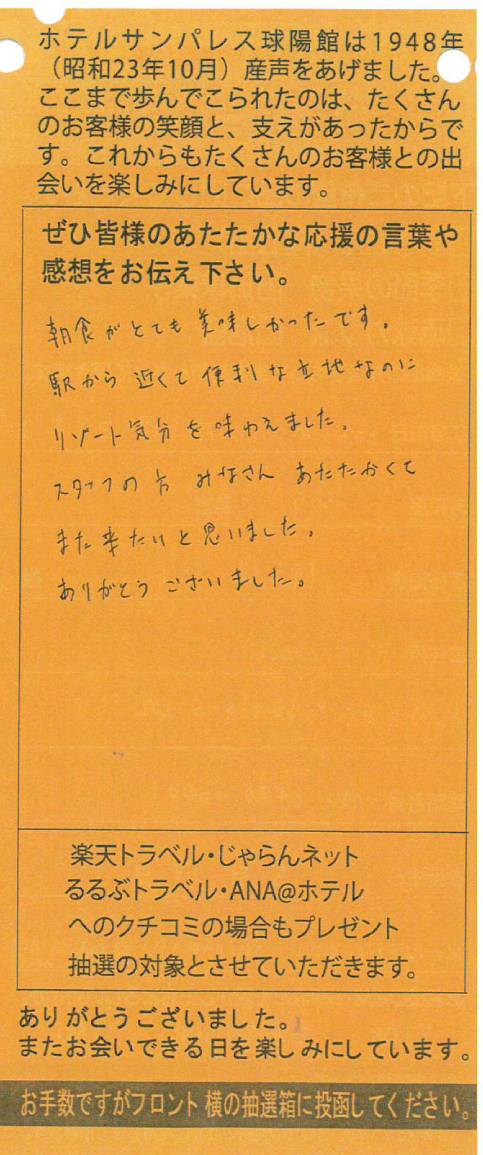 ホテルサンパレス球陽館は1948年
（昭和23年10月）産声をあげました。
ここまで歩んでこられたのは、たくさん
のお客様の笑顔と、支えがあったからで
す。これからもたくさんのお客様との出
会いを楽しみにしています。
ぜひ皆様のあたたかな応援の言葉や
感想をお伝え下さい。
朝食がとても美味しかったです。
駅から近くて便利な立地なのに
リゾート気分を味わえました。
スタッフの方みなさんあたたかくて
また来たいと思いました。
ありがとうございました。
楽天トラベル・じゃらんネット
るるぶトラベル・ANA@ホテル
へのクチコミの場合もプレゼント
抽選の対象とさせていただきます。
ありがとうございました。
またお会いできる日を楽しみにしています。
お手数ですがフロント横の抽選箱に投函してください。